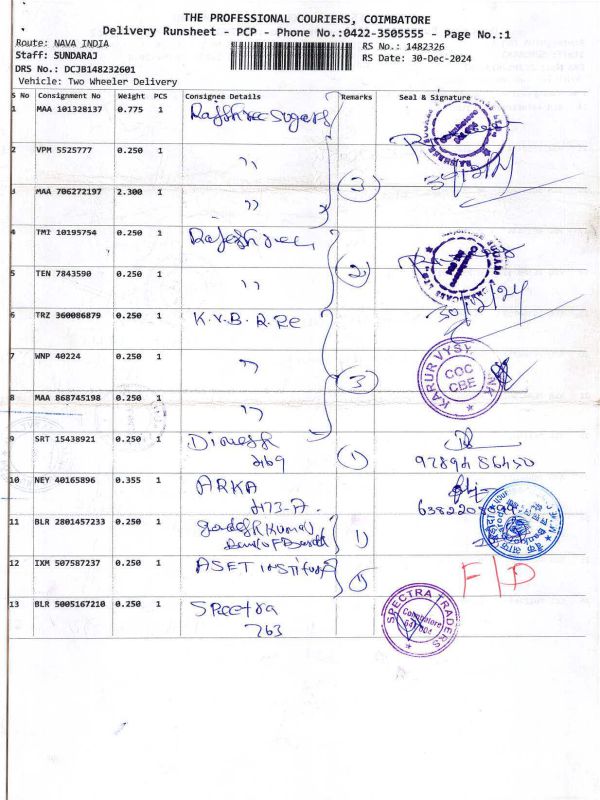 THE PROFESSIONAL COURIERS, COIMBATORE
Delivery Runsheet - PCP - Phone No.:0422-3505555 - Page No.:1
Route: NAVA INDIA
RS No.: 1482326
Staff: SUNDARAJ
RS Date: 30-Dec-2024
DRS No.: DCJB148232601
Vehicle: Two Wheeler Delivery
S No Consignment No Weight PCS Consignee Details Remarks Seal & Signature
1 MAA 101328137 0.775 1 Rajshree Sugars
2 VPM 5525777 0.250 1 ,,
30/12/24
3 MAA 706272197 2.300 1 ,, 3
4 TMI 10195754 0.250 1
5 TEN 7843590 0.250 1 ,, 2
30/12/24
6 TRZ 360086879 0.250 1 K.V.B. R.Re
7 WNP 40224 0.250 1 ,, 3
KARUR VYSYA
COC
CBE
8 MAA 868745198 0.250 1 ,,
9 SRT 15438921 0.250 1 Dinesh 1
10 NEY 40165896 0.355 1 ARKA
11 BLR 2801457233 0.250 1 1
12 IXM 507587237 0.250 1 ASET INSTITUTE 1 F/D
13 BLR 5005167210 0.250 1 Spectra
763
SPECTRA TRADERS
Coimbatore